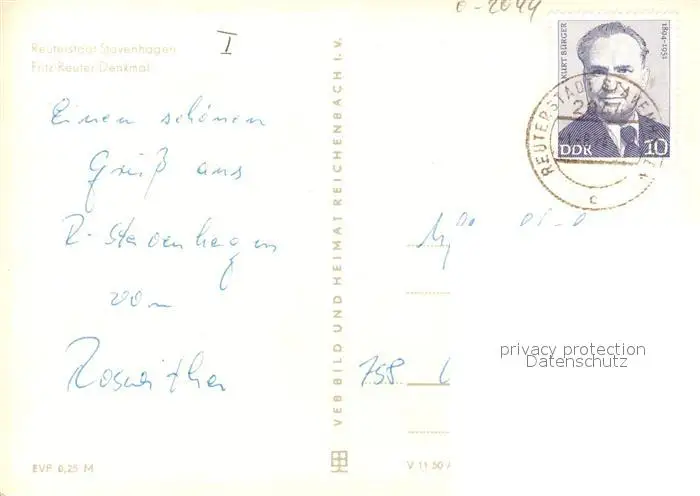 0-2044
I
Reuterstadt Stavenhagen
Fritz-Reuter-Denkmal
Einen schönen
Gruß aus
R-Stavenhagen
von
Roswitha
EVP 0,25 M
VEB BILD UND HEIMAT REICHENBACH I. V.
KURT BÜRGER
1894-1951
DDR 10
REUTERSTADT STAVENHAGEN
c
758
V 11 50
privacy protection
Datenschutz